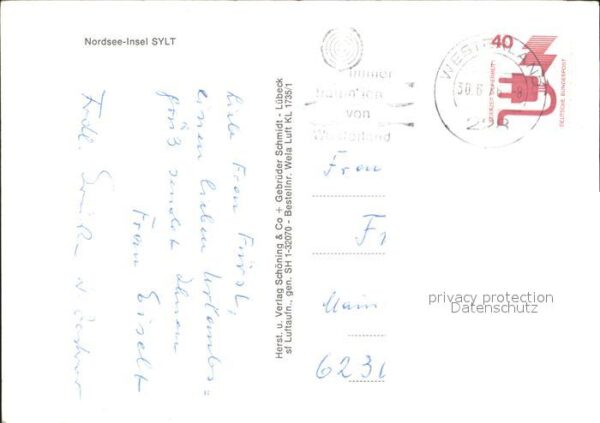 Nordsee-Insel SYLT
Liebe Frau Fürst,
einen lieben Urlaubs=
gruß sendet Ihnen
Frau Eiselt
Herst. u. Verlag Schöning & Co + Gebrüder Schmidt - Lübeck
sf Luftaufn., gen. SH 1-32070 - Bestellnr. Wela Luft KL 1735/1
immer
von
Westerland
WESTERLAND
30.6.
40
JEDERZEIT SICHERHEIT
DEUTSCHE BUNDESPOST
Frau
F
Main
623
privacy protection
Datenschutz